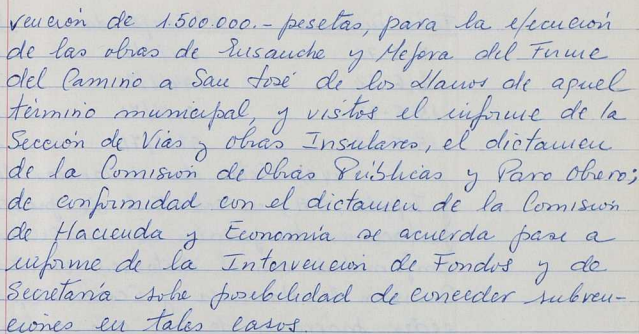 vención de 1.500.000.- pesetas, para la ejecución
de las obras de Ensanche y Mejora del Firme
del Camino a San José de los Llanos de aquel
término municipal, y vistos el informe de la
Sección de Vías y obras Insulares, el dictamen
de la Comisión de Obras Públicas y Paro Obrero;
de conformidad con el dictamen de la Comisión
de Hacienda y Economía se acuerda pase a
informe de la Intervención de Fondos y de
Secretaría sobre posibilidad de conceder subven-
ciones en tales casos.